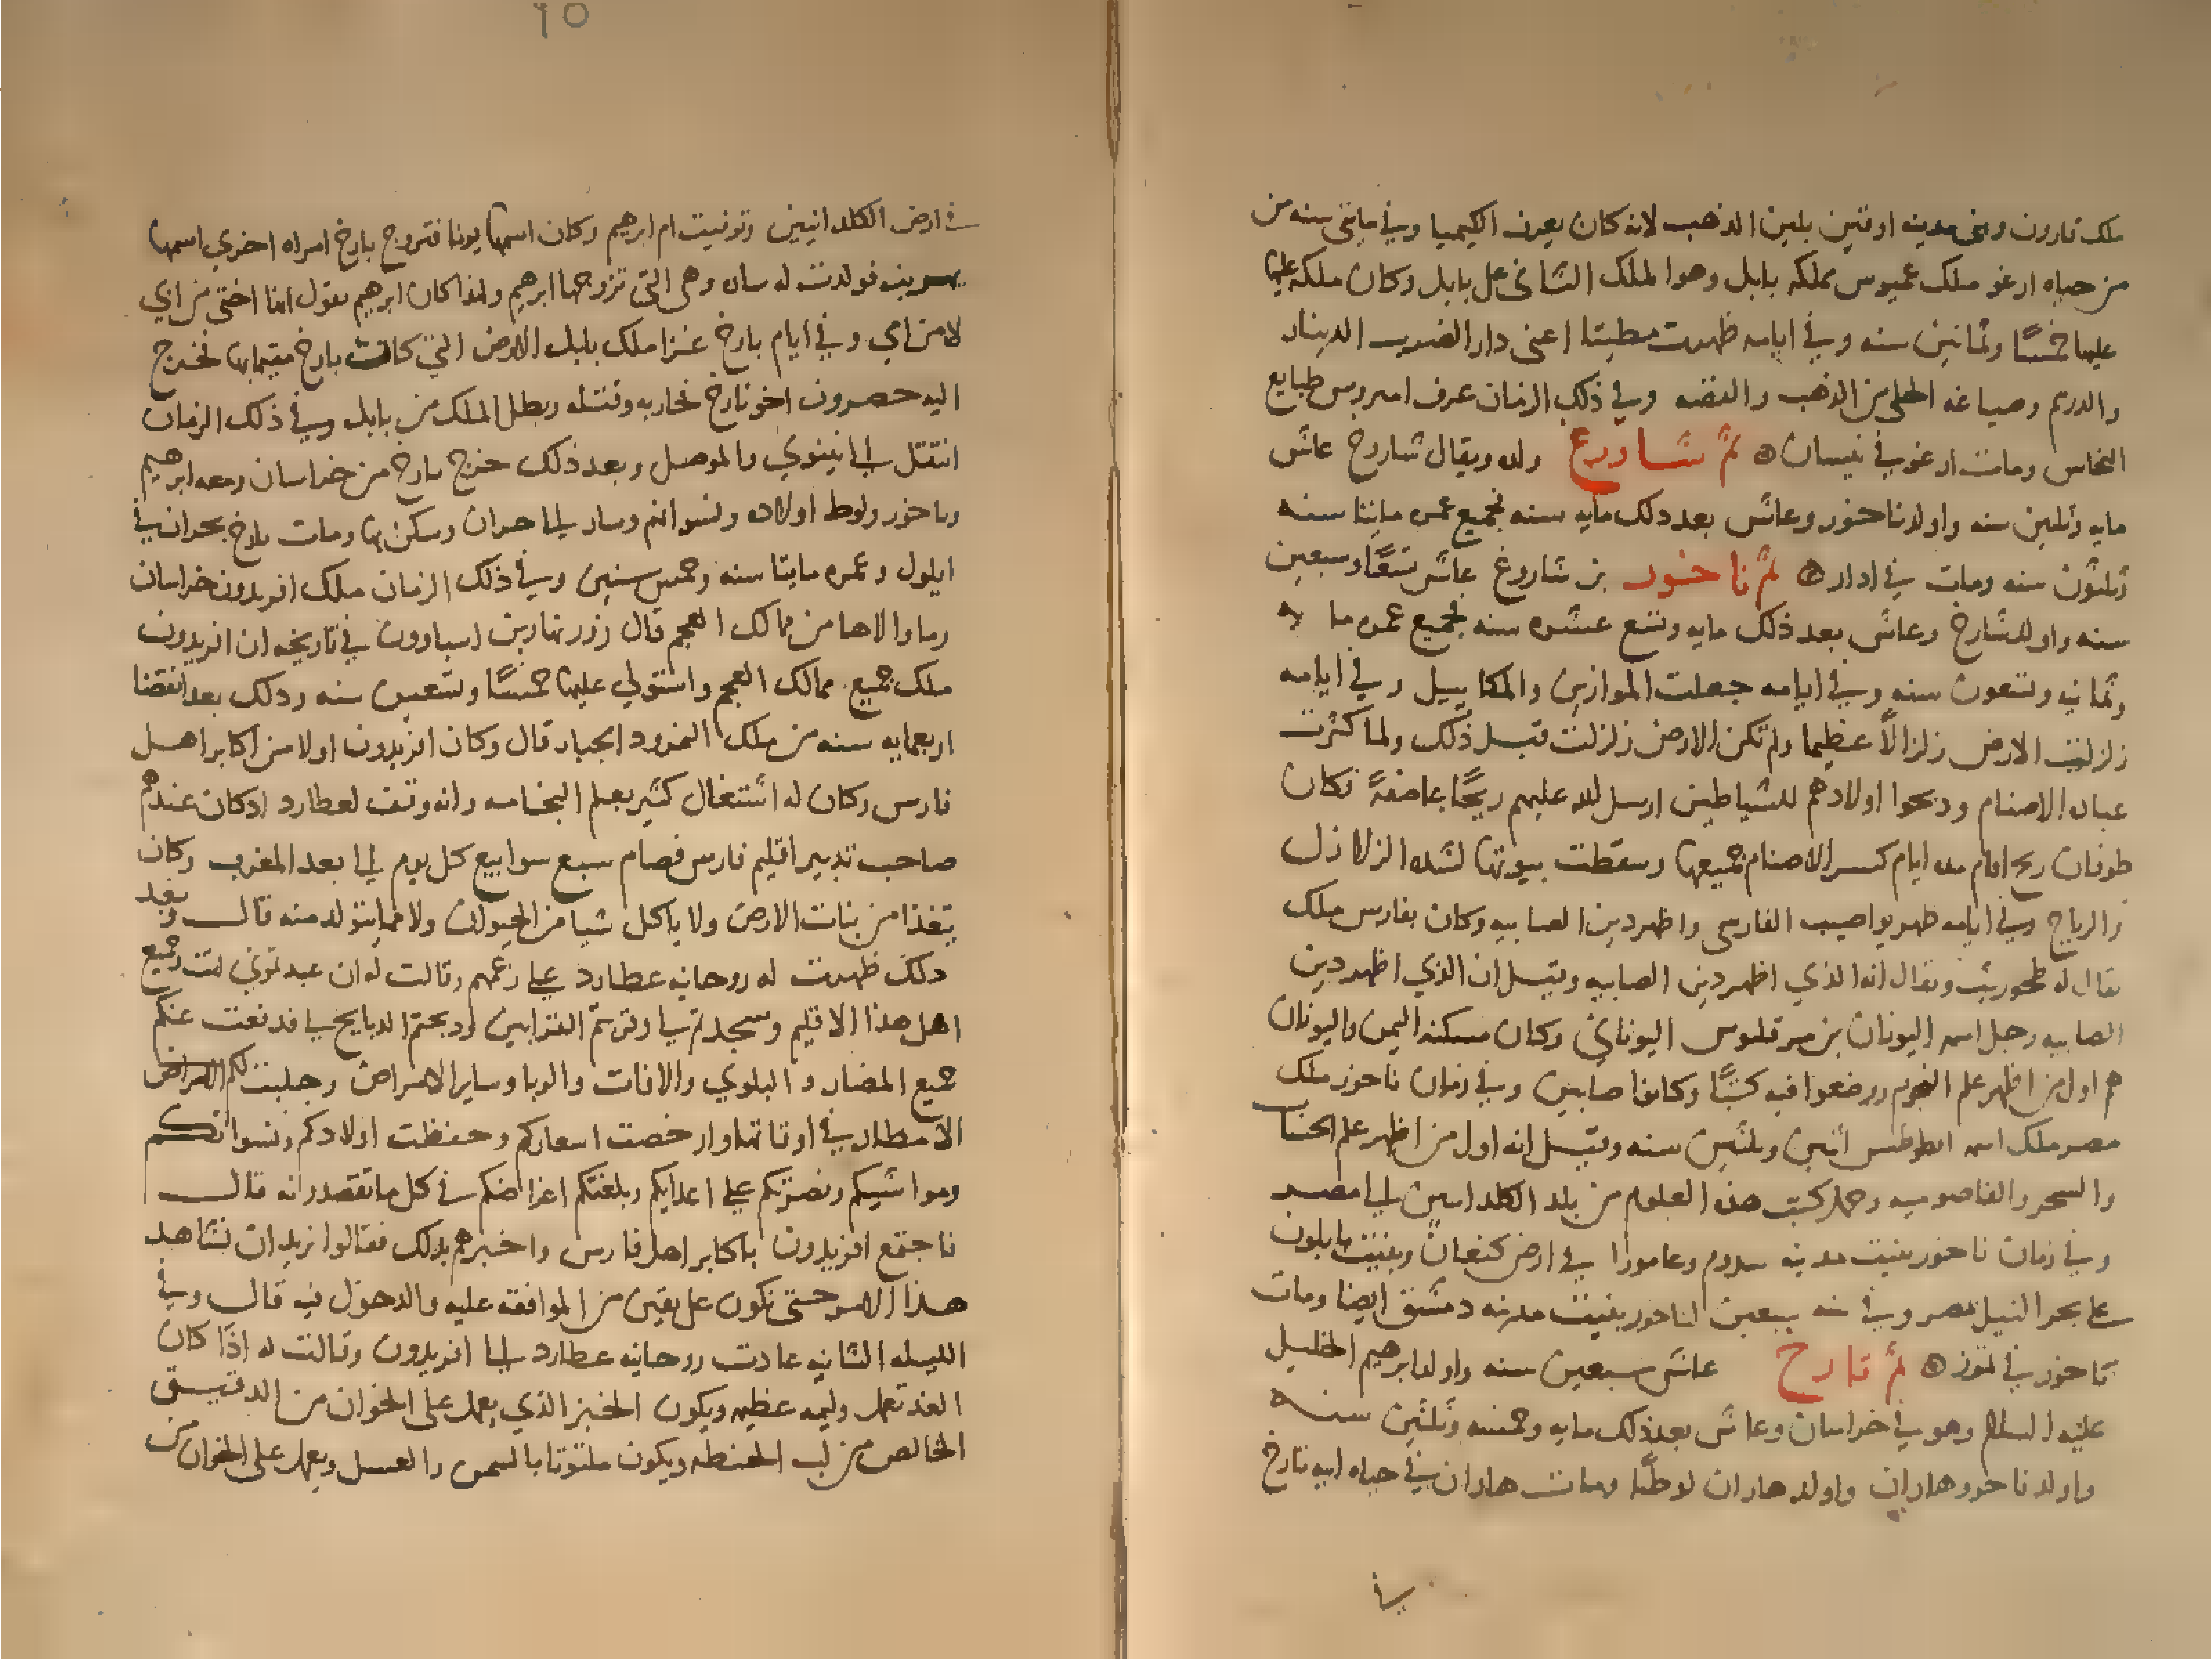 ملك قارون وبنى مدينه اوقتين بلبن الذهب لانه كان يعرف الكيميا وفي مايتي سنه من
من حياه ارغو ملك عميوس مملكه بابل وهو الملك الثاني على بابل وكان ملكه عليها
عليها خمسًا وثمانين سنه وفي ايامه ظهرت مطيتا اعنى دار الضرب الدينار
والدرهم وصياغه الحلى من الذهب والفضه وفي ذلك الزمان عرف امدروس طبايع
النحاس ومات ارغو في نيسان ثم شاروع ولده ويقال شاروخ عاش
مايه وثلثين سنه واولد ناحور وعاش بعد ذلك مايه سنه فجميع عمره مايتا سنه
وثلثون سنه ومات في ادار ثم ناحور بن شاروغ عاش تسعًا وسبعين
سنه واولد تارخ وعاش بعد ذلك مايه وتسع عشره سنه فجميع عمره مايه
وثمانيه وتسعون سنه وفي ايامه جعلت الموازين والمكاييل وفي ايامه
زلزلت الارض زلزالًا عظيما ولم تكن الارض زلزلت قبل ذلك ولما كثرت
عباد الاصنام وذبحوا اولادهم للشياطين ارسل الله عليهم ريحًا عاصفةً فكان
طوفان ريح اقام مده ايام كسر الاصنام جميعها وسقطت بيوتها لشده الزلازل
والرياح وفي ايامه ظهر يواصيب الفارسي واظهر دين الصابيه وكان بفارس ملك
يقال له طحمورث ويقال انه الذي اظهر دين الصابيه وقيل ان الذي اظهر دين
الصابيه رجل اسمه اليونان بن مرقلوس اليوناني وكان مسكنه اليمن واليونان
هم اول من اظهر علم النجوم ووضعوا فيه كتبًا وكانوا صابيين وفي زمان ناحور ملك
مصر ملك اسمه انطوطس اثنين وثلثين سنه وقيل انه اول من اظهر علم الحساب
والسحر والقاصوميه وحمل كتب هذه العلوم من بلد الكلدانيين الى مصر
وفي زمان ناحور بنيت مدينه سدوم وعامورا في ارض كنعان وبنيت بابلون
على بحر النيل بمصر وفي سنه سبعين لناحور بنيت مدينه دمشق ايضا ومات
ناحور في تموز ثم تارح عاش سبعين سنه واولد ابرهيم الخليل
عليه السلام وهو في خراسان وعاش بعد ذلك مايه وخمسه وثلثين سنه
واولد ناحور وهاران واولد هاران لوطًا ومات هاران في حياه ابيه تارخ
في
٦٥
في ارض الكلدانيين وتوفيت ام ابرهيم وكان اسمها يونا فتزوج بارخ امراه اخري اسمها
فولدت له ساره وهى التى تزوجها ابرهيم ولهذا كان ابرهيم يقول انها اختى من ابي
لا من امي وفي ايام بارخ غزا ملك بابل الارض التي كانت بارخ مقيما بها فخرج
اليه حصرون اخو تارخ فحاربه وقتله وبطل الملك من بابل وفي ذلك الزمان
انتقل الى نينوي والموصل وبعد ذلك خرج تارخ من خراسان ومعه ابرهيم
وناحور ولوط اولاده ونسوانهم وسار الى حران وسكن بها ومات بارخ بحران في
ايلول وعمره مايتا سنه وخمس سنين وفي ذلك الزمان ملك افريدون خراسان
وما والاها من ممالك العجم قال زور نهاربن اسبادون في تاريخه ان افريدون
ملك جميع ممالك العجم واستولي عليها خمسًا وتسعين سنه وذلك بعد انقضا
اربعمايه سنه من ملك النمرود الجبار قال وكان افريدون اولا من اكابر اهل
فارس وكان له اشتغال كثير بعلم النجامه وانه وقف لعطارد اذ كان عندهم
صاحب تدبير اقليم فارس فصام سبع سوابيع كل يوم الى بعد المغرب وكان
يتغذا من نبات الارض ولا ياكل شيا من الحيوان ولا مما يتولد منه قال وبعد
ذلك ظهرت له روحانيه عطارد على زعمهم وقالت له ان عبدتموني انت وجميع
اهل هذا الاقليم وسجدتم لي وقربتم القرابين وذبحتم الذبايح لي فدفعت عنكم
جميع المضار والبلوي والافات والوبا وساير الامراض وجلبت لكم
الامطار في اوقاتها وارخصت اسعاركم وحفظت اولادكم ونسوانكم
ومواشيكم ونصرتكم على اعدايكم وبلغتكم اغراضكم في كل ما تقصدوانه قال
فاجتمع افريدون باكابر اهل فارس واخبرهم بذلك فقالوا نريد ان نشاهد
هذا الامر حتى نكون على يقين من الموافقه عليه والدخول فيه قال وفي
الليله الثانيه عادت روحانيه عطارد الى افريدون وقالت له اذا كان
الغد تعمل وليمه عظيمه ويكون الخبز الذي يعمل على الخوان من الدقيق
الخالص من لب الحنطه ويكون ملتوتا بالسمن والعسل ويعمل على الخوان